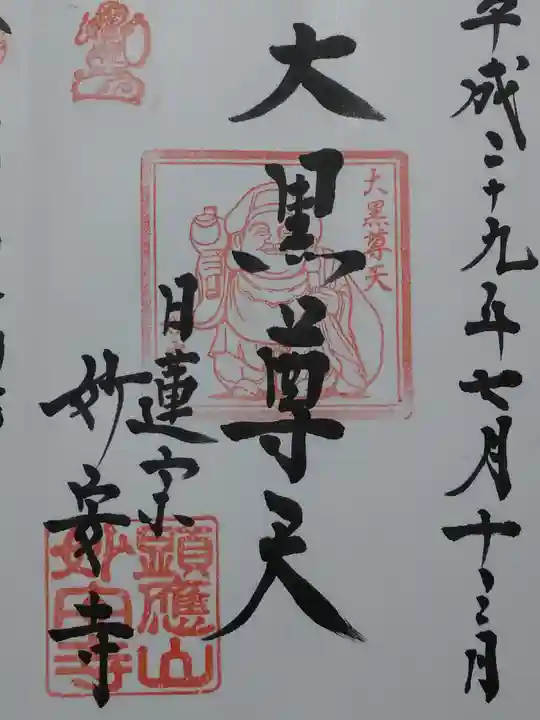 平成二十九年七月十二日
大黒尊天
大黒尊天
日蓮宗
妙安寺
顕應山
妙安寺